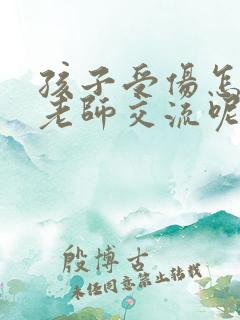 孩子受傷怎
老師交流呢
殷博古
未任同意禁止轉載